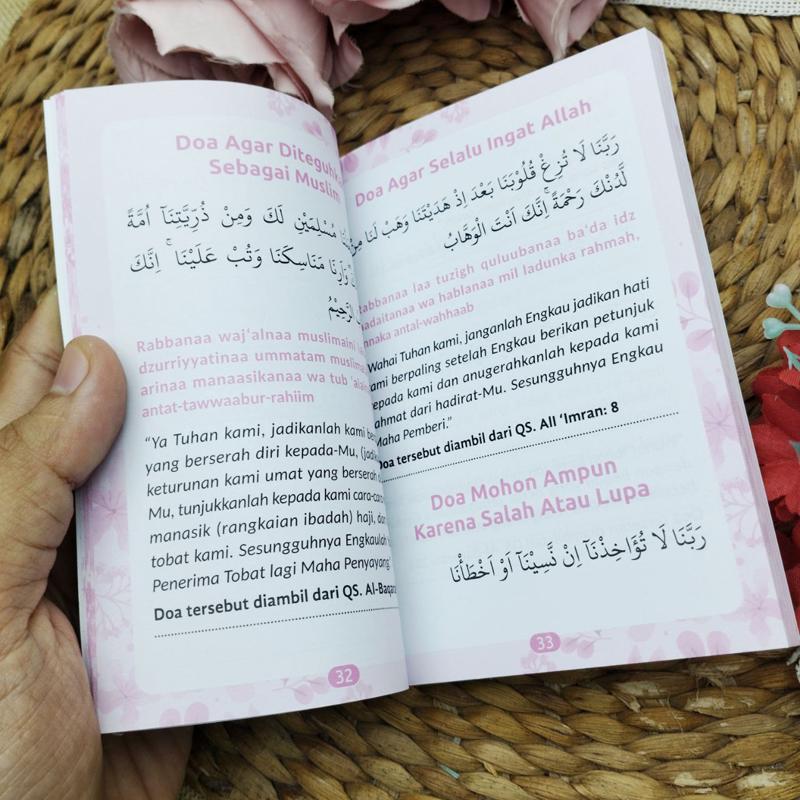 Doa Agar Diteguhk
Sebagai Muslim
مُسْلِمَيْنِ لَكَ وَمِنْ ذُرِّيَّتِنَآ اُمَّةً
وَاَرِنَا مَنَاسِكَنَا وَتُبْ عَلَيْنَا ۚ اِنَّكَ
الرَّحِيْمُ
Rabbanaa waj'alnaa muslimaini
dzurriyyatinaa ummatam muslima
arinaa manaasikanaa wa tub 'alai
antat-tawwaabur-rahiim
"Ya Tuhan kami, jadikanlah kami
yang berserah diri kepada-Mu, (jad
keturunan kami umat yang berserah
Mu, tunjukkanlah kepada kami cara-cara
manasik (rangkaian ibadah) haji, da
tobat kami. Sesungguhnya Engkaulah
Penerima Tobat lagi Maha Penyayang
Doa tersebut diambil dari QS. Al-Baqar
32
Doa Agar Selalu Ingat Allah
رَبَّنَا لَا تُزِغْ قُلُوْبَنَا بَعْدَ اِذْ هَدَيْتَنَا وَهَبْ لَنَا مِنْ
لَّدُنْكَ رَحْمَةً ۚاِنَّكَ اَنْتَ الْوَهَّابُ
abbanaa laa tuzigh quluubanaa ba'da idz
adaitanaa wa hablanaa mil ladunka rahmah,
nnaka antal-wahhaab
Wahai Tuhan kami, janganlah Engkau jadikan hati
ami berpaling setelah Engkau berikan petunjuk
epada kami dan anugerahkanlah kepada kami
ahmat dari hadirat-Mu. Sesungguhnya Engkau
Maha Pemberi."
Doa tersebut diambil dari QS. Ali 'Imran: 8
Doa Mohon Ampun
Karena Salah Atau Lupa
رَبَّنَا لَا تُؤَاخِذْنَآ اِنْ نَّسِيْنَآ اَوْ اَخْطَأْنَا
33